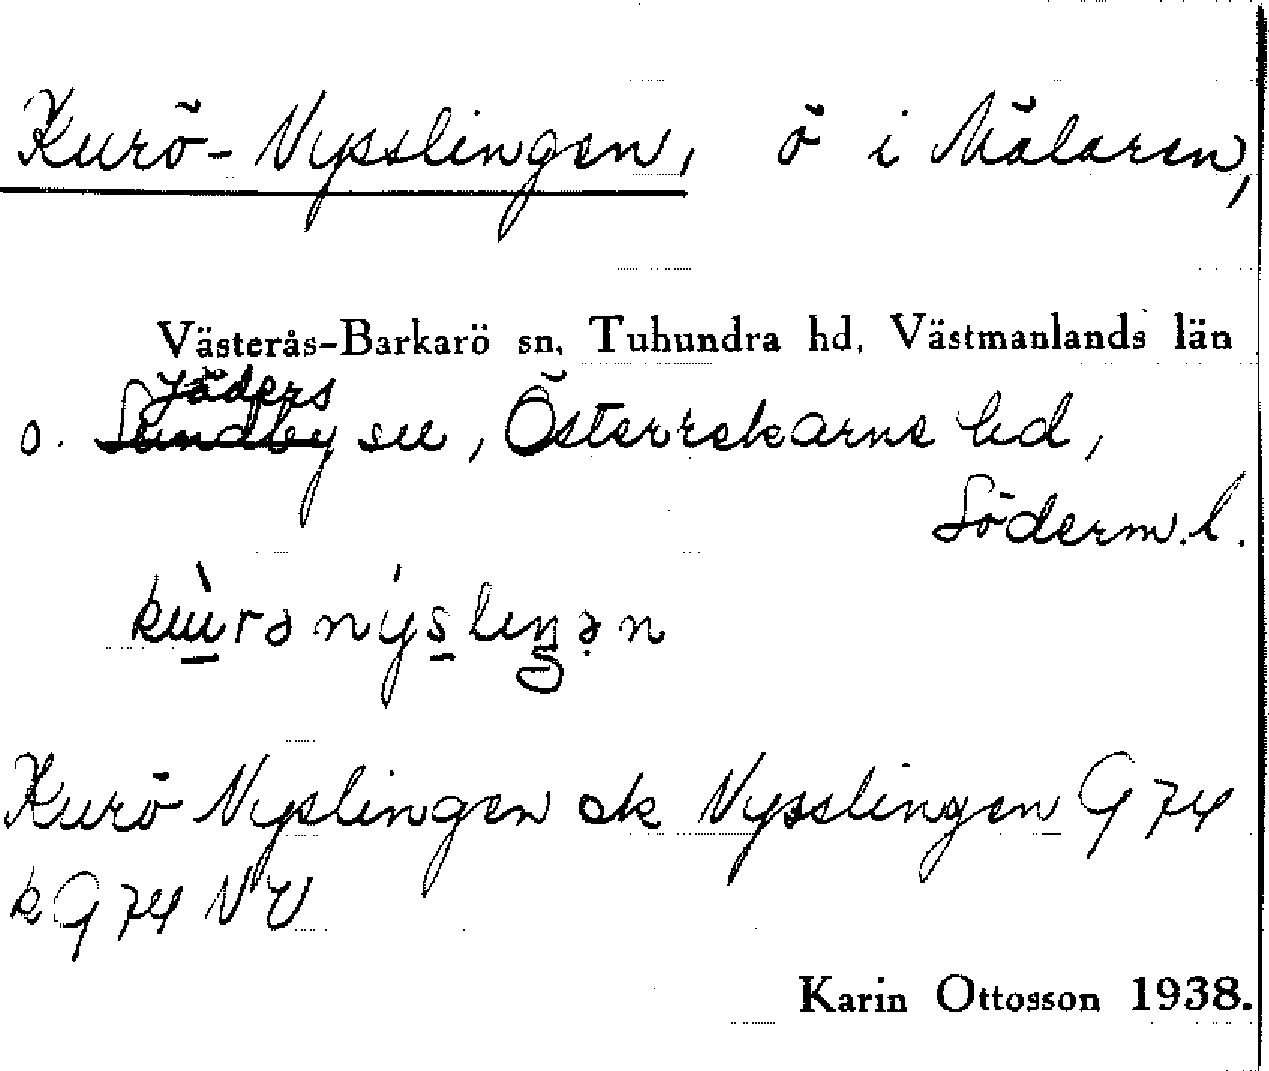 Kurö-Nysslingen, ö i Mälaren,
Västerås-Barkarö sn, Tuhundra hd, Västmanlands län
Jäders
o. Sundby sn, Österrekarne hd,
Söderm. l.
Kurö Nyslingen ek Nysslingen G 74
k G 74 NV
Karin Ottosson 1938.